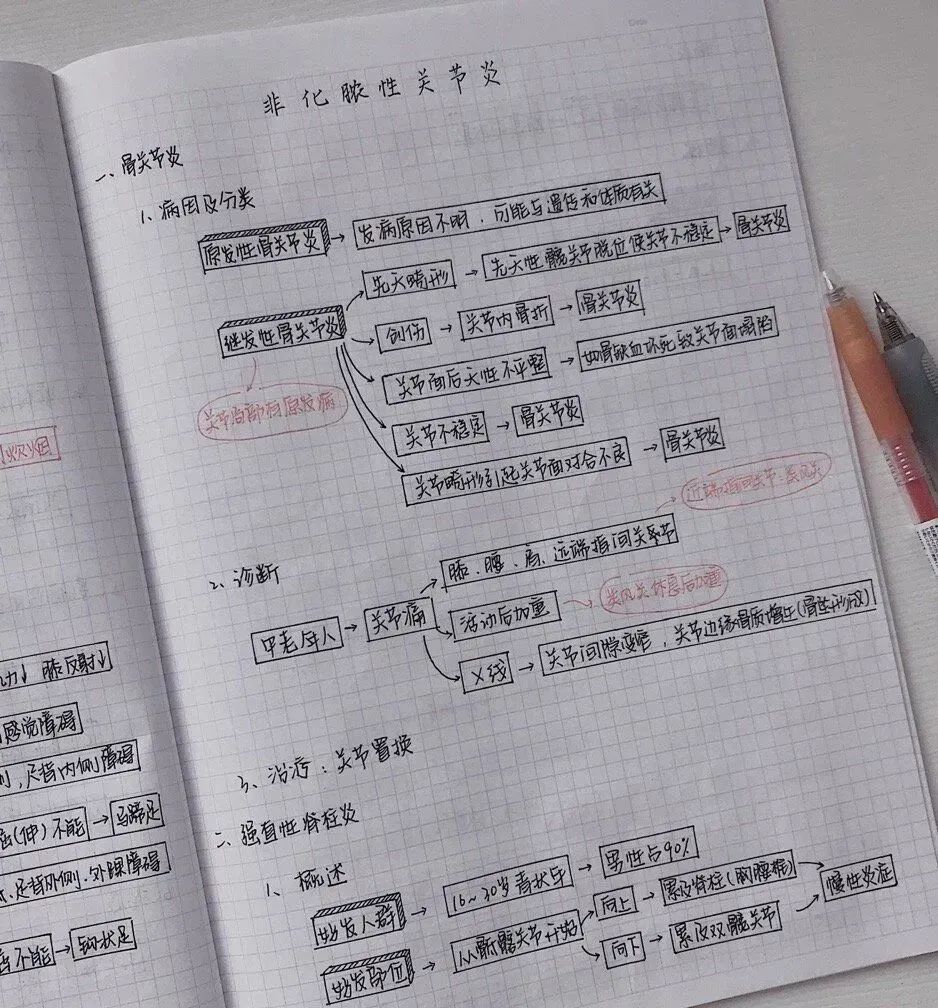 非化脓性关节炎
一、骨关节炎
1、病因及分类
原发性骨关节炎 → 发病原因不明，可能与遗传和体质有关
继发性骨关节炎
先天畸形 → 先天性髋关节脱位使关节不稳定 → 骨关节炎
创伤 → 关节内骨折 → 骨关节炎
关节面后天性不平整 → 如骨缺血坏死致关节面塌陷
关节局部有原发病
关节不稳定 → 骨关节炎
关节畸形引起关节面对合不良 → 骨关节炎
近端指间关节:类风关
2、诊断
膝、腰、肩、远端指间关节
中老年人 → 关节痛
活动后加重
类风关休息后加重
X线 → 关节间隙变窄，关节边缘骨质增生(骨赘形成)
3、治疗：关节置换
二、强直性脊柱炎
1、概述
好发人群 → 16~30岁青壮年 → 男性占90%
好发部位 → 从骶髂关节开始
向上 → 累及脊柱(胸腰椎)
向下 → 累及双髋关节
慢性炎症
力↓ 膝反射↓
感觉障碍
，足背内侧障碍
(伸)不能 → 马蹄足
足背外侧、外踝障碍
不能 → 钩状足